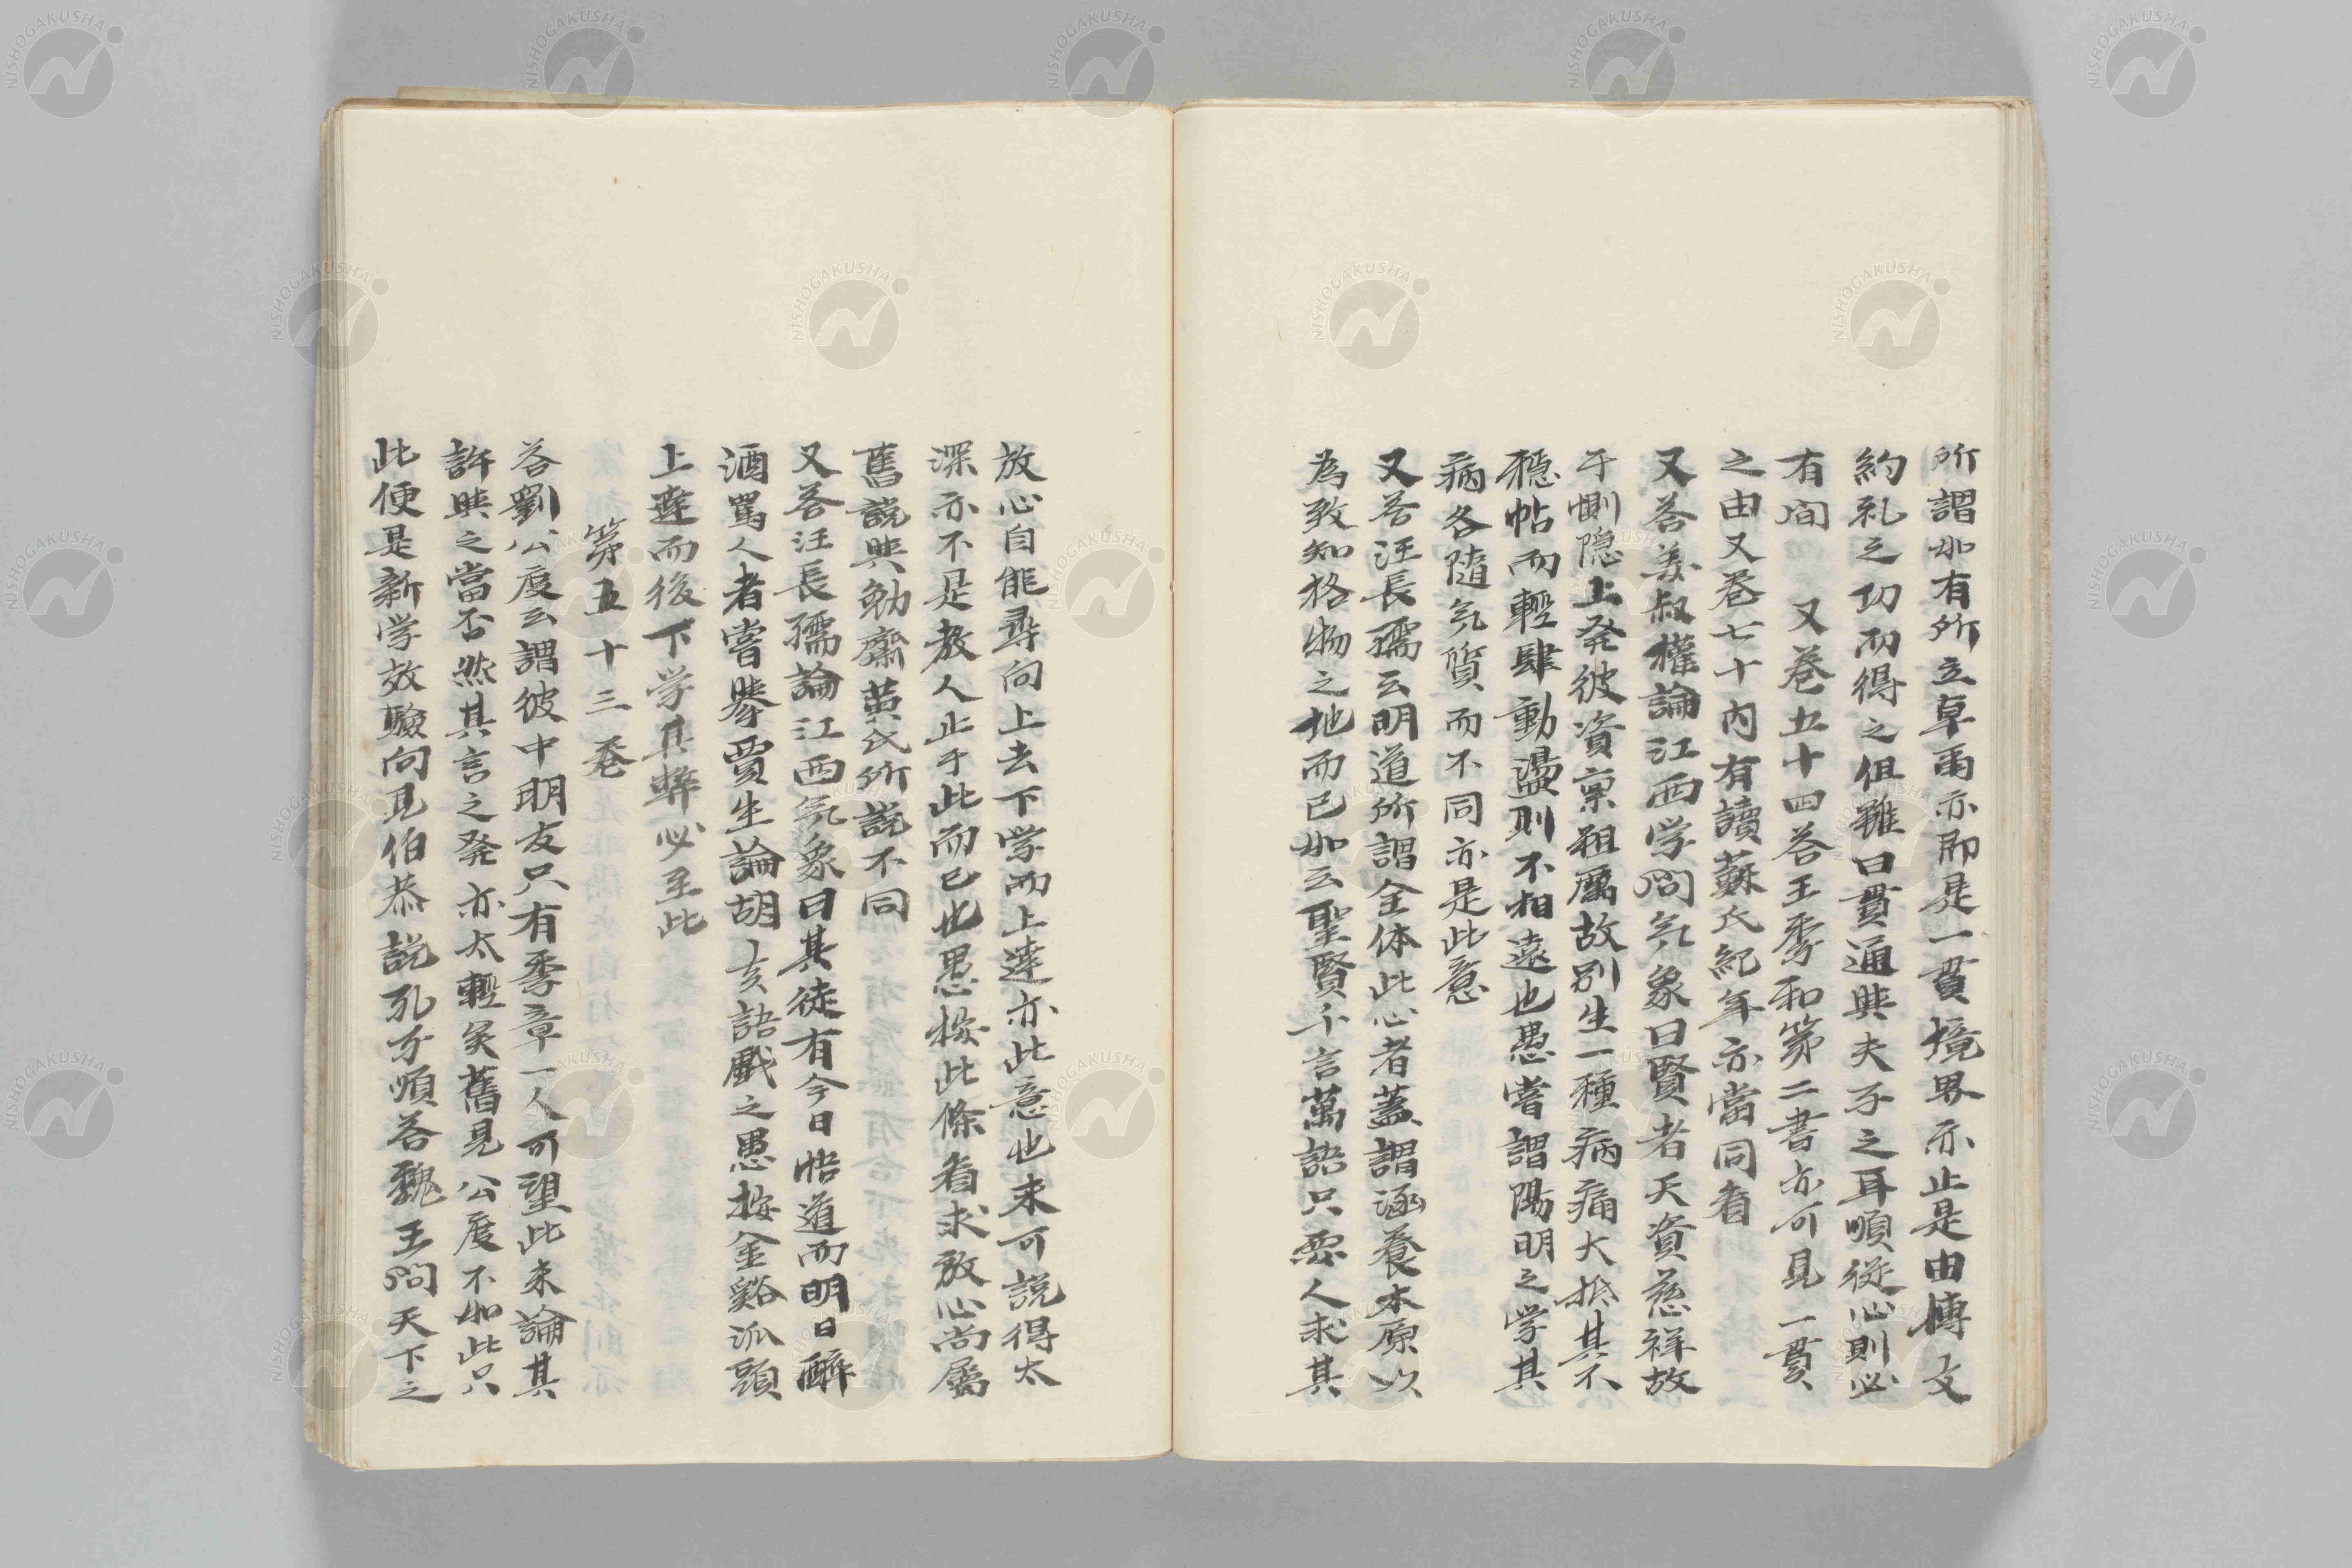 所謂如有所立卓爾亦即是一貫境界亦止是由博文
約礼之功而得之但雖曰貫通與夫子之耳順従心則必
有间　又巻五十四答王季和第二書亦可見一貫
之由又巻七十内有讀蘇氏紀年亦當同看
又答姜叔權論江西学問気象曰賢者天資慈祥故
于惻隠上発彼資禀粗厲故別生一種病痛大抵其不
穏帖而輕肆動盪則不相遠也愚嘗謂陽明之学其
病各隨気質而不同亦是此意
又答汪長孺云明道所謂全体此心者蓋謂涵養本原以
為致知格物之地而已如云聖賢千言萬語只要人求其
放心自能尋向上去下学而上達亦此意也未可説得太
深亦不是教人止于此而已也愚按此條看求放心尚屬
舊説與勉齋黄氏所説不同
又答汪長孺論江西気象曰其徒有今日悟道而明日醉
酒罵人者嘗舉賈生論胡亥語戲之愚按金谿派頭
上達而後下学其弊必至此
第五十三巻
答劉公度云謂彼中朋友只有季章一人可望此未論其
許與之當否然其言之発亦太輕矣舊見公度不如此只
此便是新学效驗向見伯恭説孔子順答魏王問天下之